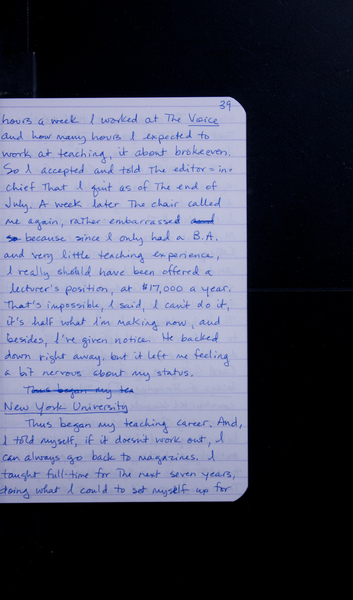 39
hours a week I worked at The Voice
and how many hours I expected to
work at teaching, it about brokeeven.
So I accepted and told the editor-in-
chief that I quit as of the end of
July. A week later the chair called
me again, rather embarrassed and
so because since I only had a B.A.
and very little teaching experience,
I really should have been offered a
lecturer's position, at $17,000 a year.
That's impossible, I said, I can't do it,
it's half what I'm making now, and
besides, I've given notice. He backed
down right away. but it left me feeling
a bit nervous about my status.
Thus began my tea
New York University
Thus began my teaching career. And,
I told myself, if it doesn't work out, I
can always go back to magazines. I
taught full-time for the next seven years,
doing what I could to set myself up for